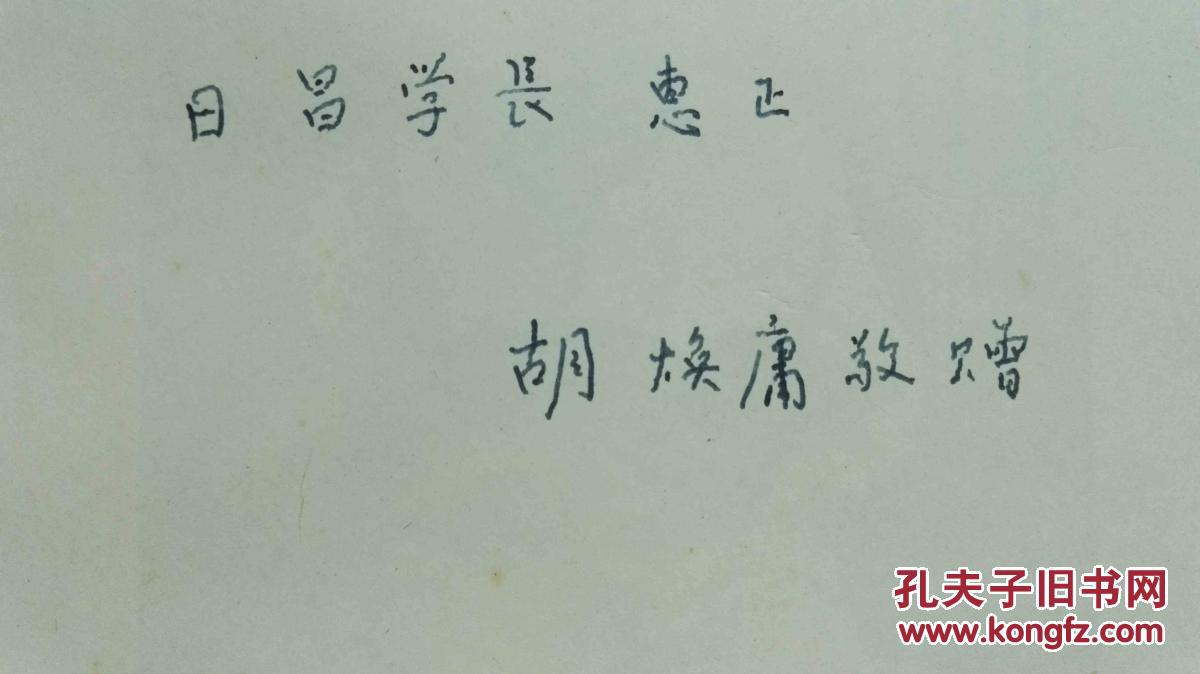 日昌学長 惠正
胡焕庸敬赠
孔夫子旧书网
www.kongfz.com